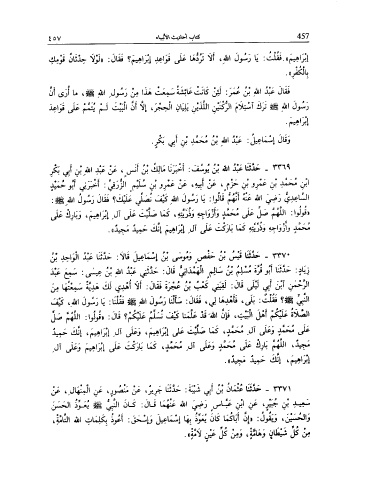 ٤٥٧ كتاب أحاديث الأنبياء 457
إِبْرَاهِيمَ». فَقُلْتُ: يَا رَسُولَ اللهِ، أَلَا تَرُدُّهَا عَلَى قَوَاعِدِ إِبْرَاهِيمَ؟ فَقَالَ: «لَوْلَا حِدْثَانُ قَوْمِكِ
بِالْكُفْرِ».
فَقَالَ عَبْدُ اللهِ بْنُ عُمَرَ: لَئِنْ كَانَتْ عَائِشَةُ سَمِعَتْ هَذَا مِنْ رَسُولِ اللهِ ﷺ، مَا أُرَى أَنَّ
رَسُولَ اللهِ ﷺ تَرَكَ اسْتِلَامَ الرُّكْنَيْنِ اللَّذَيْنِ يَلِيَانِ الْحِجْرَ، إِلَّا أَنَّ الْبَيْتَ لَمْ يُتَمَّمْ عَلَى قَوَاعِدِ
إِبْرَاهِيمَ.
وَقَالَ إِسْمَاعِيلُ: عَبْدُ اللهِ بْنُ مُحَمَّدِ بْنِ أَبِي بَكْرٍ.
٣٣٦٩ - حَدَّثَنَا عَبْدُ اللهِ بْنُ يُوسُفَ: أَخْبَرَنَا مَالِكُ بْنُ أَنَسٍ، عَنْ عَبْدِ اللهِ بْنِ أَبِي بَكْرِ
ابْنِ مُحَمَّدِ بْنِ عَمْرِو بْنِ حَزْمٍ، عَنْ أَبِيهِ، عَنْ عَمْرِو بْنِ سُلَيْمٍ الزُّرَقِيِّ: أَخْبَرَنِي أَبُو حُمَيْدٍ
السَّاعِدِيُّ رَضِيَ اللهُ عَنْهُ أَنَّهُمْ قَالُوا: يَا رَسُولَ اللهِ كَيْفَ نُصَلِّي عَلَيْكَ؟ فَقَالَ رَسُولُ اللهِ ﷺ:
«قُولُوا: اللَّهُمَّ صَلِّ عَلَى مُحَمَّدٍ وَأَزْوَاجِهِ وَذُرِّيَّتِهِ، كَمَا صَلَّيْتَ عَلَى آلِ إِبْرَاهِيمَ، وَبَارِكْ عَلَى
مُحَمَّدٍ وَأَزْوَاجِهِ وَذُرِّيَّتِهِ كَمَا بَارَكْتَ عَلَى آلِ إِبْرَاهِيمَ إِنَّكَ حَمِيدٌ مَجِيدٌ».
٣٣٧٠ - حَدَّثَنَا قَيْسُ بْنُ حَفْصٍ وَمُوسَى بْنُ إِسْمَاعِيلَ قَالَا: حَدَّثَنَا عَبْدُ الْوَاحِدِ بْنُ
زِيَادٍ: حَدَّثَنَا أَبُو قُرَّةَ مُسْلِمُ بْنُ سَالِمٍ الْهَمْدَانِيُّ قَالَ: حَدَّثَنِي عَبْدُ اللهِ بْنُ عِيسَى: سَمِعَ عَبْدَ
الرَّحْمٰنِ ابْنَ أَبِي لَيْلَى قَالَ: لَقِيَنِي كَعْبُ بْنُ عُجْرَةَ فَقَالَ: أَلَا أُهْدِي لَكَ هَدِيَّةً سَمِعْتُهَا مِنَ
النَّبِيِّ ﷺ؟ فَقُلْتُ: بَلَى، فَأَهْدِهَا لِي، فَقَالَ: سَأَلْنَا رَسُولَ اللهِ ﷺ فَقُلْنَا: يَا رَسُولَ اللهِ، كَيْفَ
الصَّلَاةُ عَلَيْكُمْ أَهْلَ الْبَيْتِ، فَإِنَّ اللهَ قَدْ عَلَّمَنَا كَيْفَ نُسَلِّمُ عَلَيْكُمْ؟ قَالَ: «قُولُوا: اللَّهُمَّ صَلِّ
عَلَى مُحَمَّدٍ وَعَلَى آلِ مُحَمَّدٍ، كَمَا صَلَّيْتَ عَلَى إِبْرَاهِيمَ، وَعَلَى آلِ إِبْرَاهِيمَ، إِنَّكَ حَمِيدٌ
مَجِيدٌ. اللَّهُمَّ بَارِكْ عَلَى مُحَمَّدٍ وَعَلَى آلِ مُحَمَّدٍ، كَمَا بَارَكْتَ عَلَى إِبْرَاهِيمَ وَعَلَى آلِ
إِبْرَاهِيمَ، إِنَّكَ حَمِيدٌ مَجِيدٌ».
٣٣٧١ - حَدَّثَنَا عُثْمَانُ بْنُ أَبِي شَيْبَةَ: حَدَّثَنَا جَرِيرٌ، عَنْ مَنْصُورٍ، عَنِ الْمِنْهَالِ، عَنْ
سَعِيدِ بْنِ جُبَيْرٍ، عَنِ ابْنِ عَبَّاسٍ رَضِيَ اللهُ عَنْهُمَا قَالَ: كَانَ النَّبِيُّ ﷺ يُعَوِّذُ الْحَسَنَ
وَالْحُسَيْنَ، وَيَقُولُ: «إِنَّ أَبَاكُمَا كَانَ يُعَوِّذُ بِهَا إِسْمَاعِيلَ وَإِسْحَقَ: أَعُوذُ بِكَلِمَاتِ اللهِ التَّامَّةِ،
مِنْ كُلِّ شَيْطَانٍ وَهَامَّةٍ، وَمِنْ كُلِّ عَيْنٍ لَامَّةٍ».